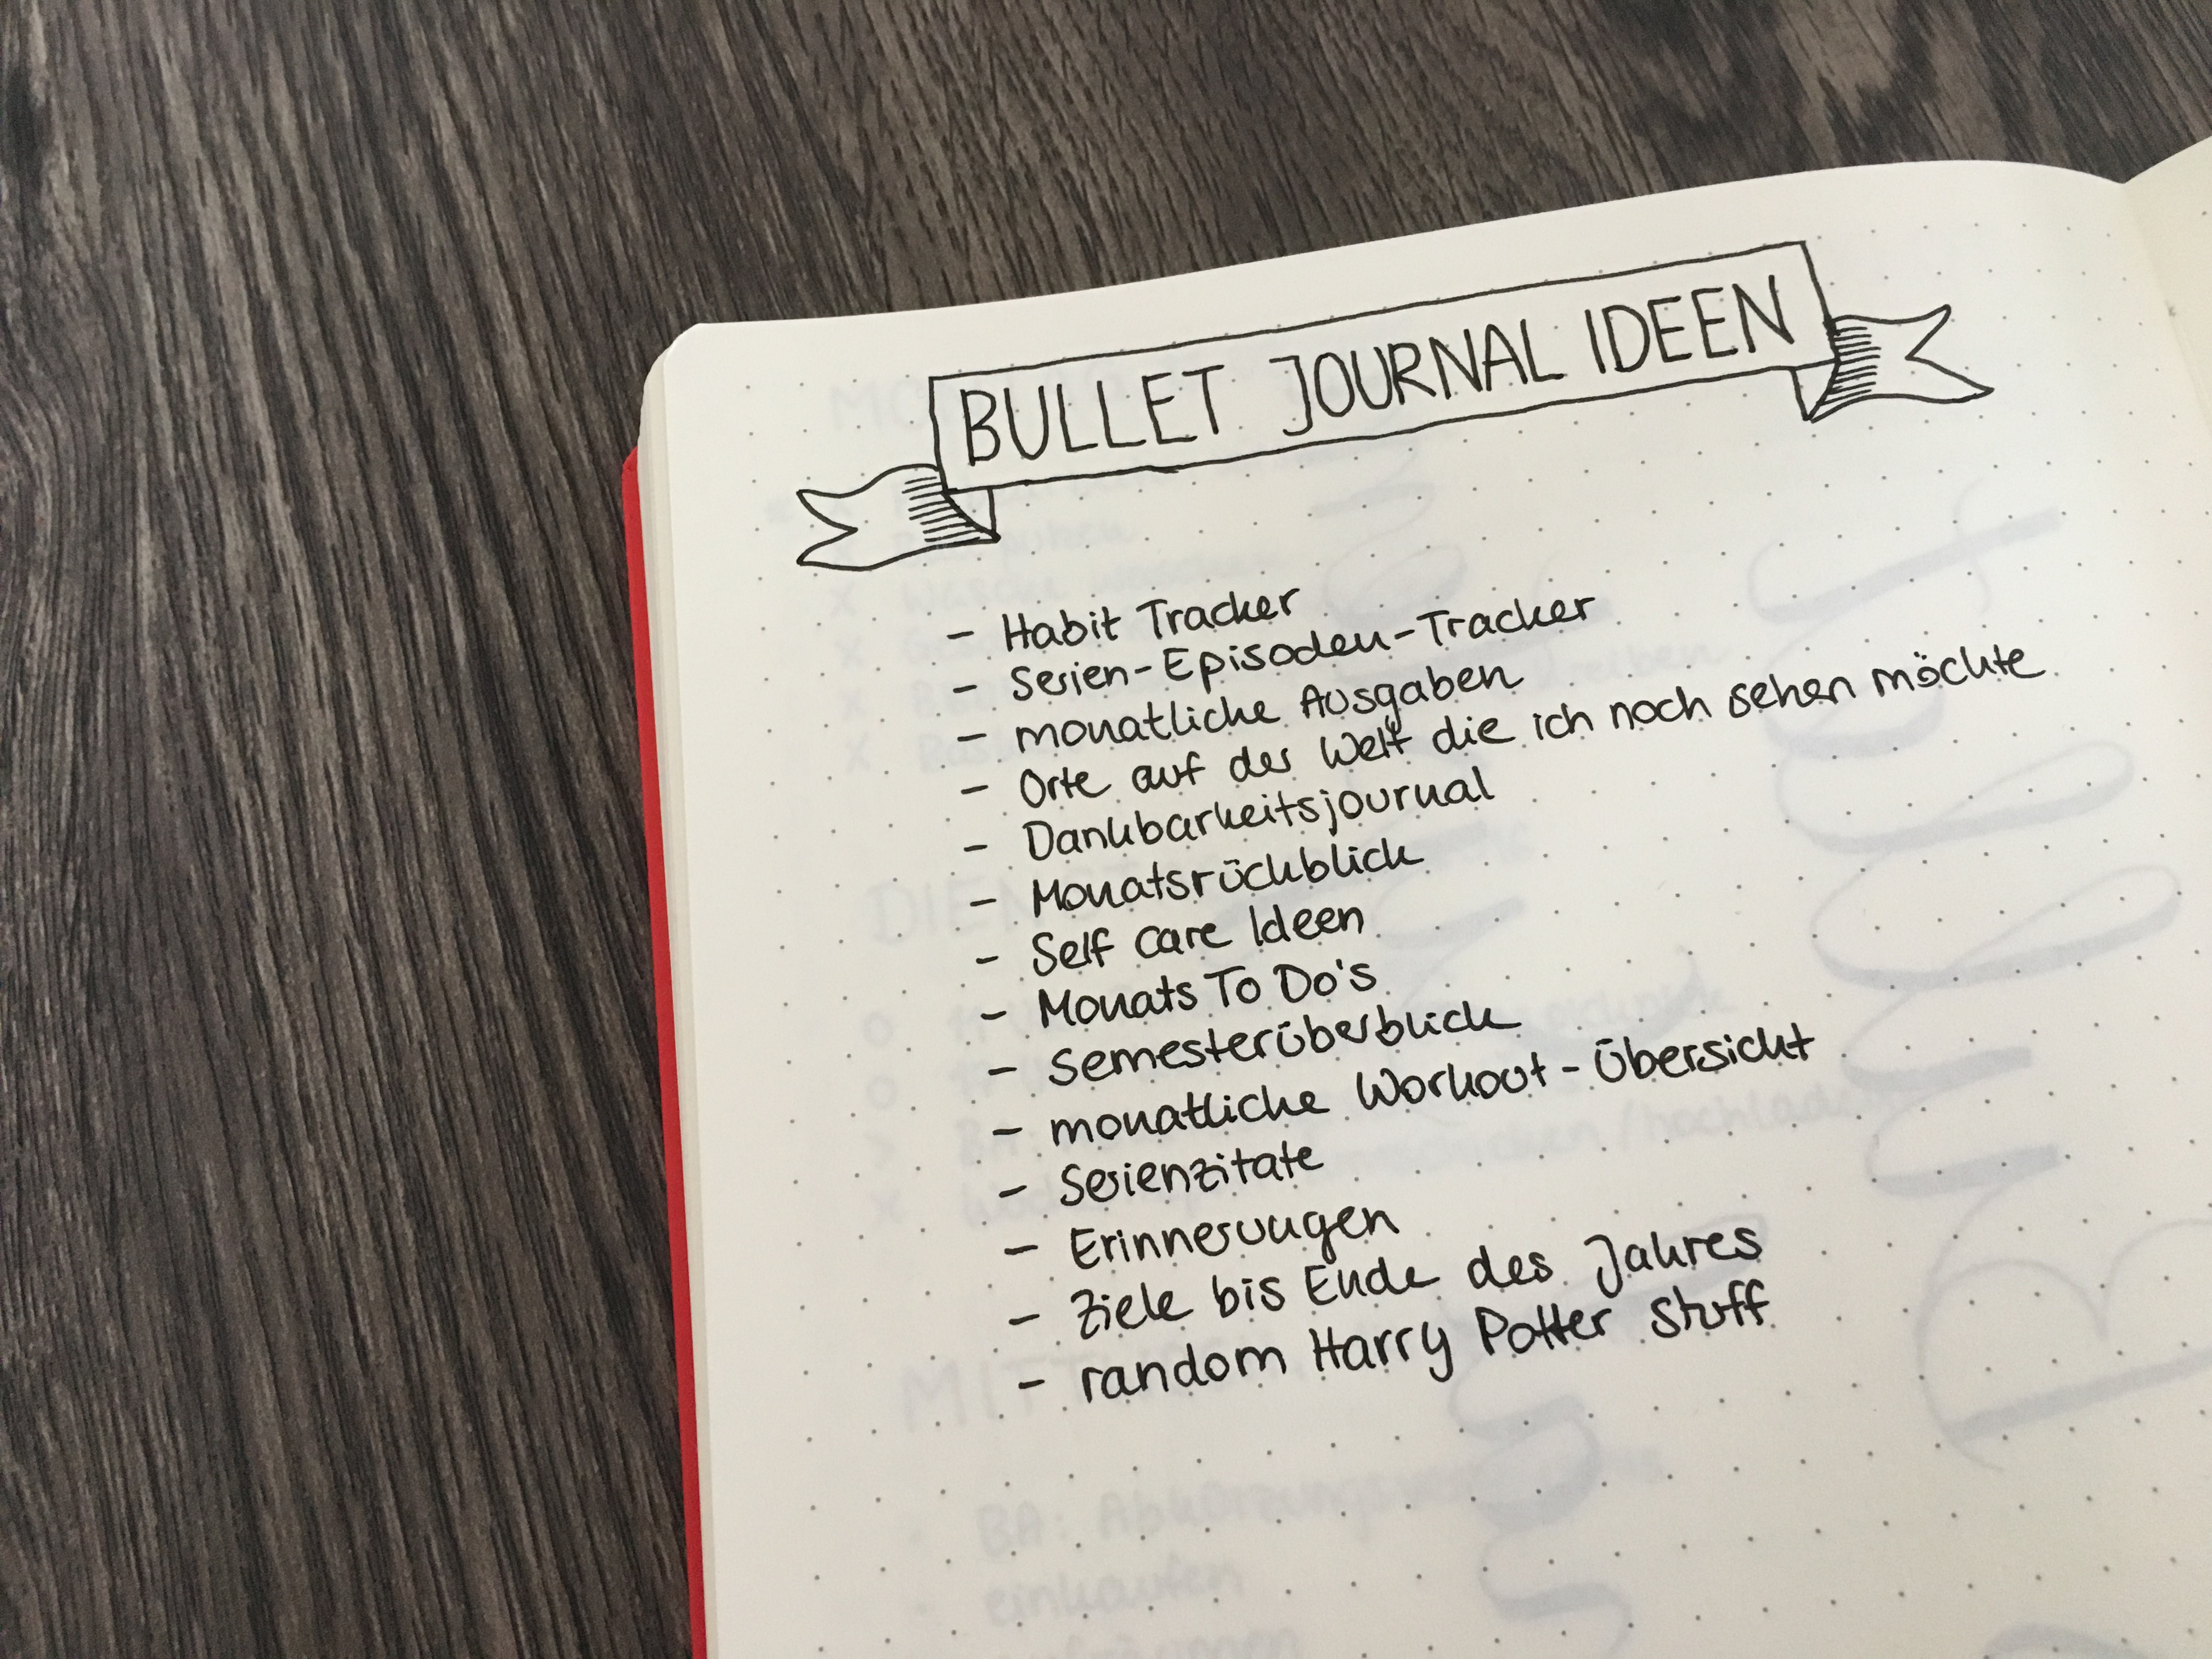 BULLET JOURNAL IDEEN
- Habit Tracker
- Serien-Episoden-Tracker
- monatliche Ausgaben
- Orte auf der Welt die ich noch sehen möchte
- Dankbarkeitsjournal
- Monatsrückblick
- Self Care Ideen
- Monats To Do's
- Semesterüberblick
- monatliche Workout-Übersicht
- Serienzitate
- Erinnerungen
- Ziele bis Ende des Jahres
- random Harry Potter Stuff
BA:
einkaufen